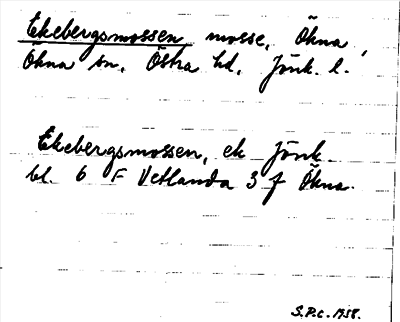 Ekebergsmossen mosse, Ökna,
Ökna sn, Östra hd, Jönk. l.
Ekebergsmossen, ek Jönk.
bl. 6 F Vetlanda 3 f Ökna.
S.P.C. 1958.